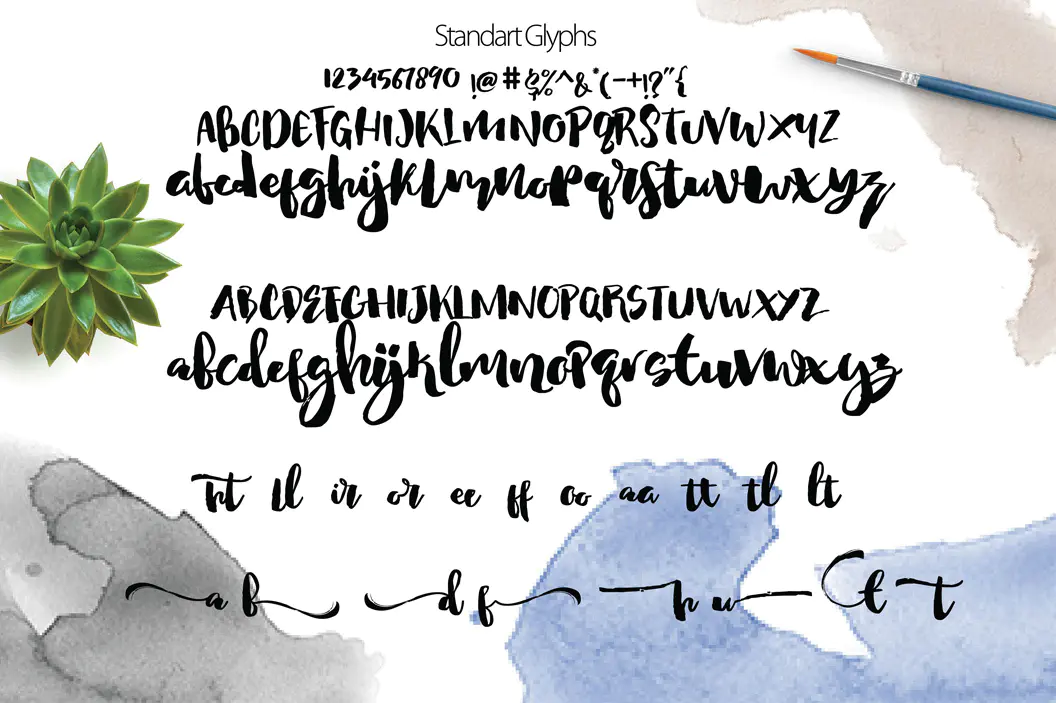 Standart Glyphs
1234567890 !@#$%^&*(-+!?"{
ABCDEFGHIJKLMNOPQRSTUVWXYZ
abcdefghijklmnopqrstuvwxyz
ABCDEFGHIJKLMNOPQRSTUVWXYZ
abcdefghijklmnopqrstuvwxyz
ht ll ir or ee ff oo aa tt tl lt
a b d f h u t t